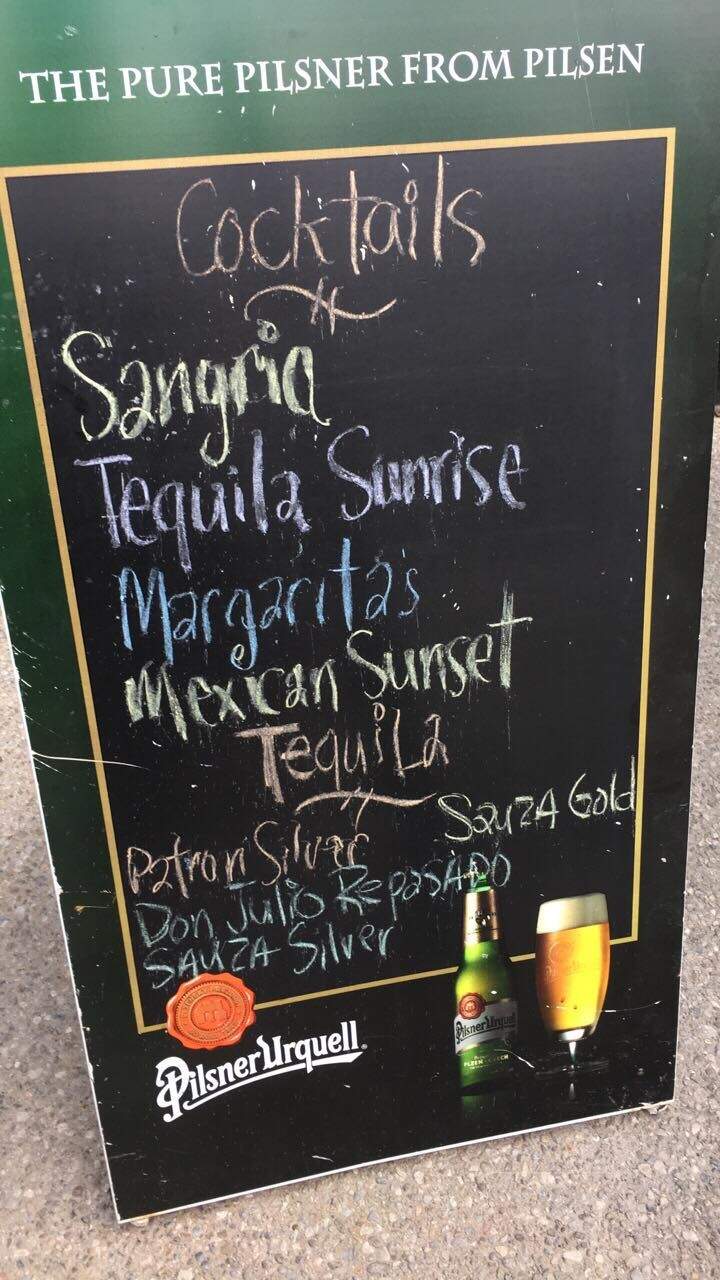 THE PURE PILSNER FROM PILSEN
Cocktails
Sangria
Tequila Sunrise
Margarita's
Mexican Sunset
Tequila
Sauza Gold
Patron Silver
Don Julio RepasADO
SAUZA Silver
Pilsner Urquell
Pilsner Urquell